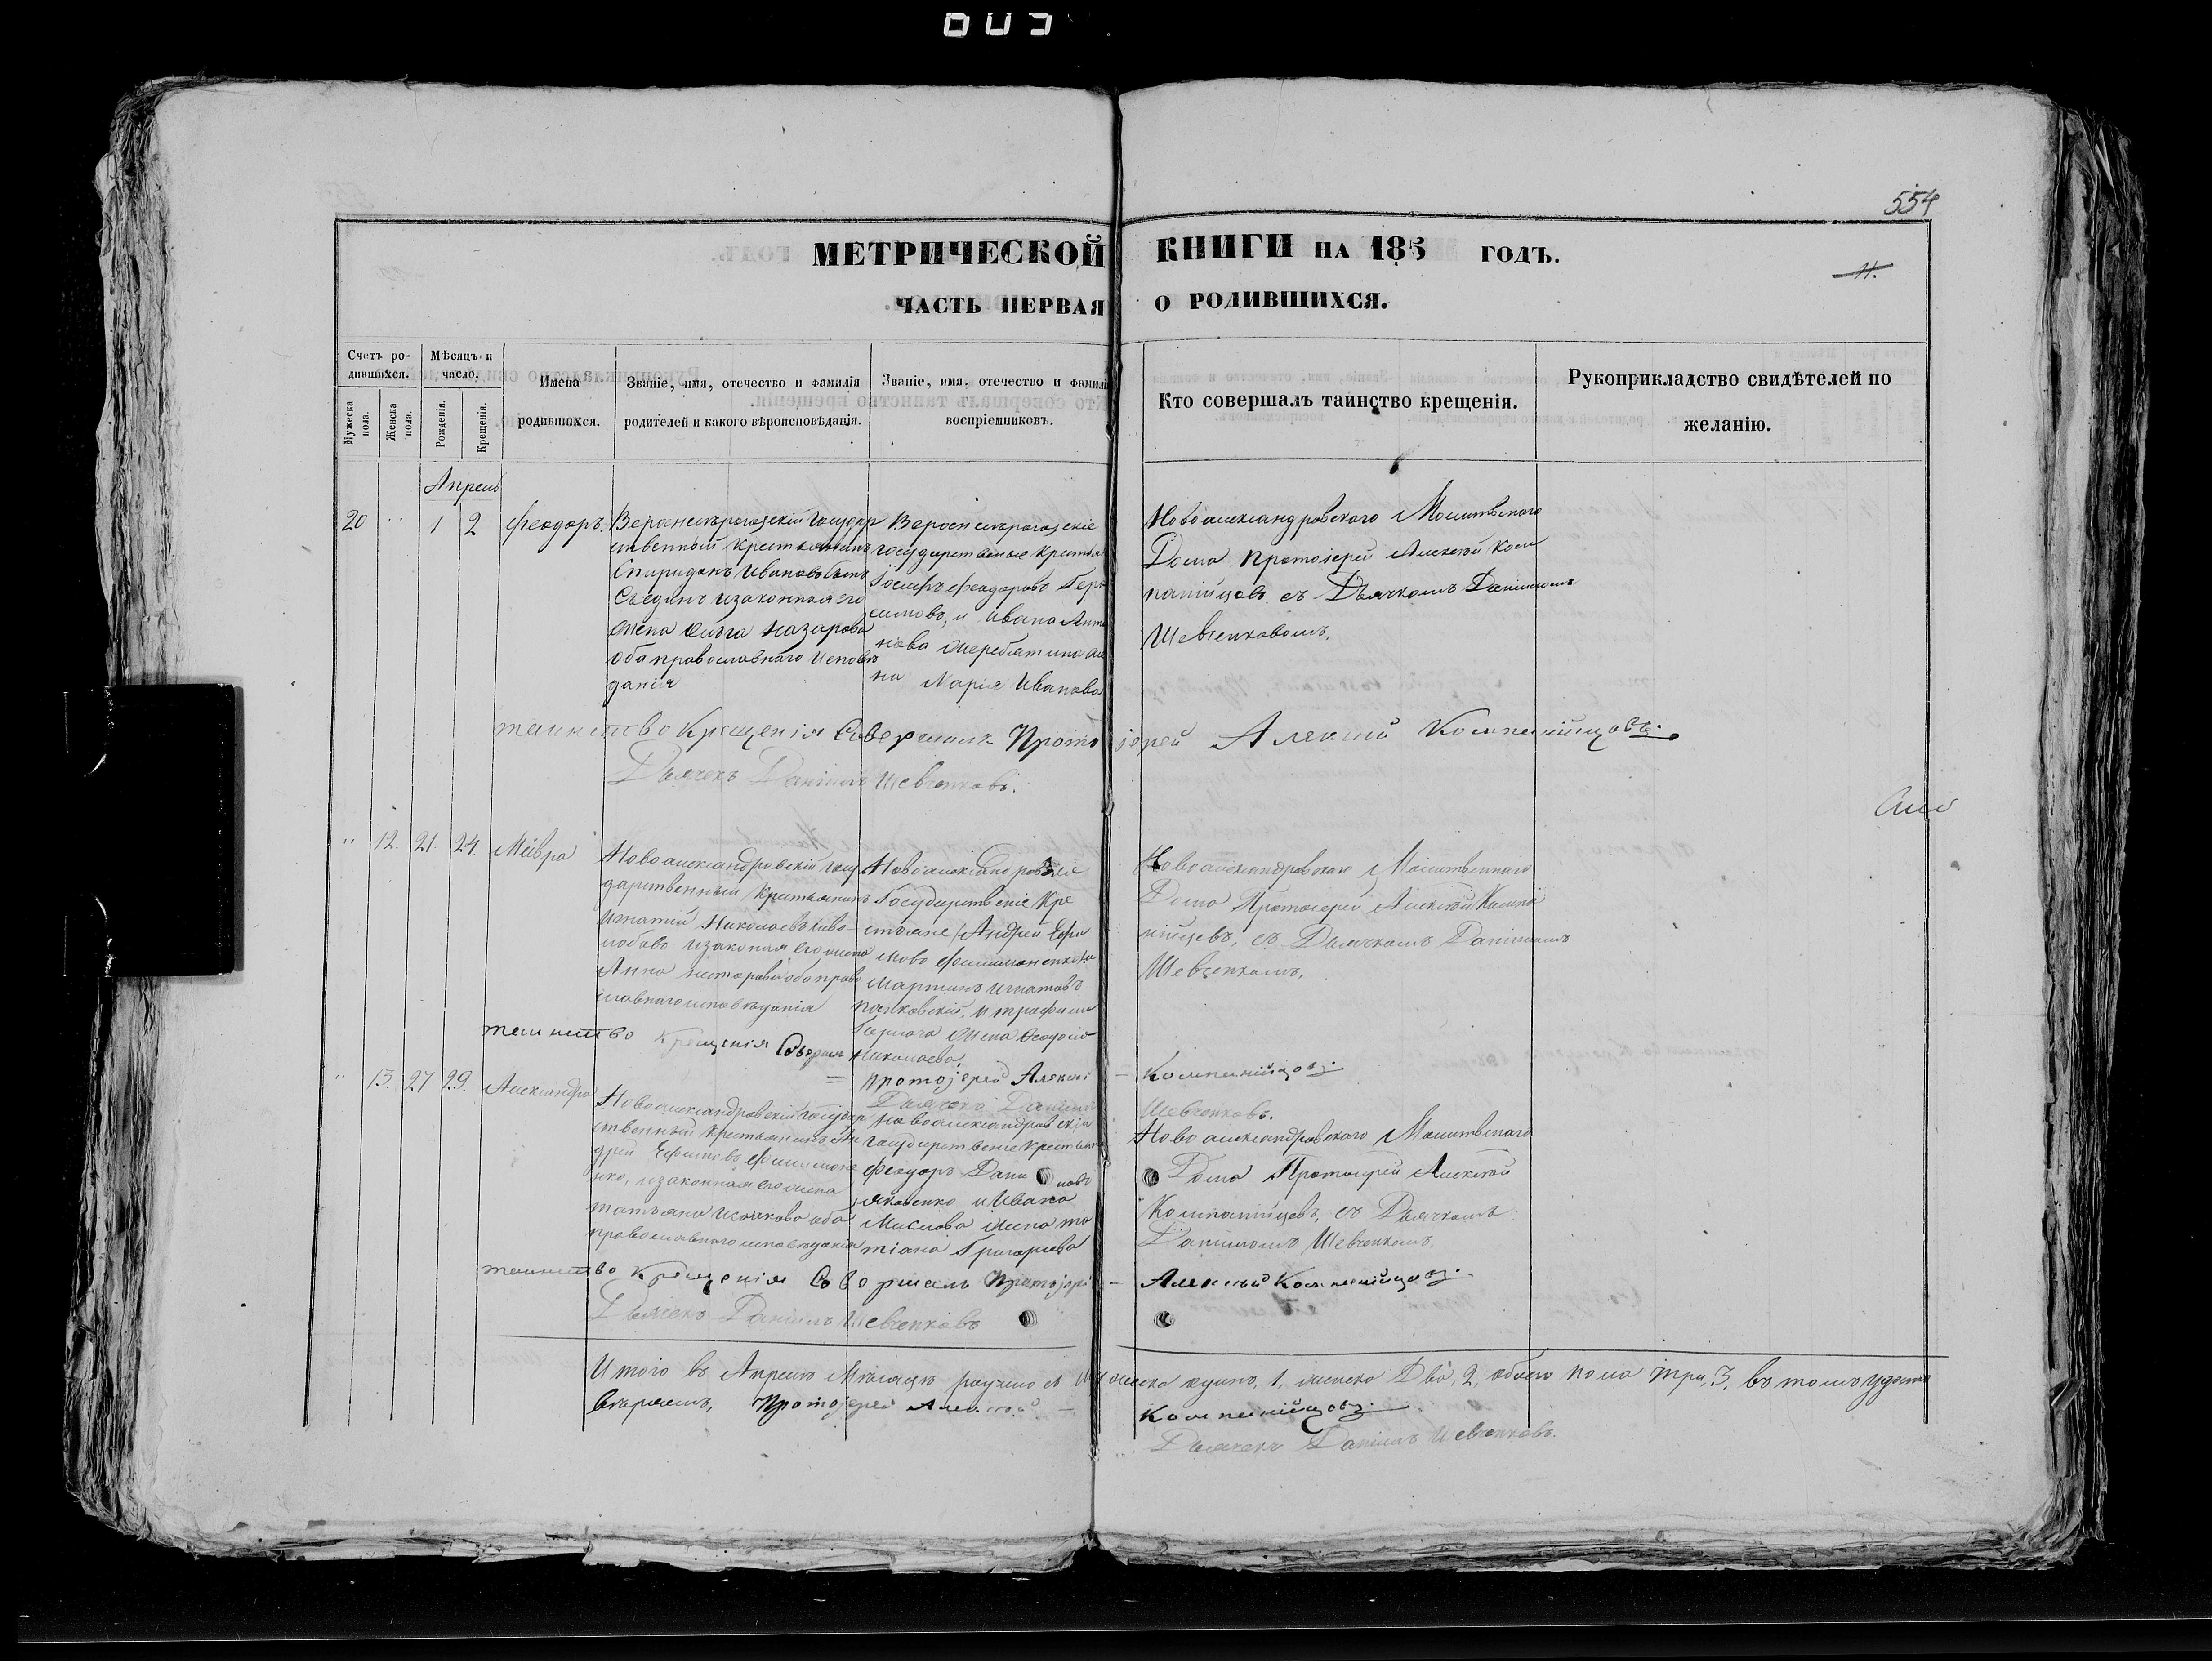 003
554
МЕТРИЧЕСКОЙ КНИГИ НА 185 ГОДЪ.
11.
ЧАСТЬ ПЕРВАЯ О РОДИВШИХСЯ.
Счетъ ро-
дившихся.
Мужеска пола.
Женска пола.
Мѣсяцъ и
число.
Рожденія.
Крещенія.
Имена
родившихся.
Званіе, имя, отечество и фамилія
родителей и какого вѣроисповѣданія.
Званіе, имя, отечество и фамилі
воспріемниковъ.
Кто совершалъ таинство крещенія.
Рукоприкладство свидѣтелей по
желанію.
Апрель
20 " 1 2 Феодоръ.
государ
ственный крестьянинъ
Спиридонъ Ивановъ
и законная его
жена Назарова
оба православнаго исповѣ
данія
государственые крестья
Іосифъ Феодоровъ Гера
симовъ, и Ивана Анто
нова же
на Марія Иванова
Новоалександровскаго Молитвенаго
Дома протоіерей Алексѣй Ком
панійцевъ съ Дьячкомъ Даніиломъ
Шевченковомъ,
таинство Крещенія Совершилъ Протоіерей Алексий Компанийцовъ.
Дьячекъ Даніилъ Шевченковъ.
" 12. 21. 24. Мавра
Новоалександровскій госу
дарственный крестьянинъ
Игнатій Николаевъ
и законая его жена
Анна оба право
славнаго исповѣданія
Новоалександровскіе
Государственіе Кре
стьяне Андрей Ефи
мовъ Филимоненко
Мартинъ Игнатовъ
и Трофима
жена Феодосія
Николаева,
Новоалександровскаго Молитвеннаго
Дома Протоіерей Алексѣй Компа
нійцевъ, съ Дьячкомъ Даніиломъ
Шевченкомъ,
таинство Крещенія Совершилъ
протоіерей Алексий Компанийцовъ.
Дьячекъ Даніилъ Шевченковъ.
" 13. 27 29. Александра
Новоалександровскій государ
ственный крестьянинъ Ан
дрей Ефимовъ Филимоне
нко, и законная его жена
татьяна оба
православнаго исповѣданія
Новоалександровскіе
государственіе крестьяне
Феодоръ Дани ловъ
Яковенко и Ивана
Маслова жена та
тіана Григорьева
Новоалександровскаго Молитвенаго
Дома Протоіерей Алексѣй
Компанійцевъ, съ Дьячкомъ
Даніиломъ Шевченкомъ,
таинство Крещенія Совершалъ Протоіерей Алексий Компанийцовъ.
Дьячекъ Даніилъ Шевченковъ
Итого въ Апрелѣ Мѣсяцѣ мужеска единъ, 1, женска Двѣ, 2, обоего пола три, 3, въ томъ
Протоіерей Алексий Компанийцовъ.
Дьячекъ Даніилъ Шевченковъ.